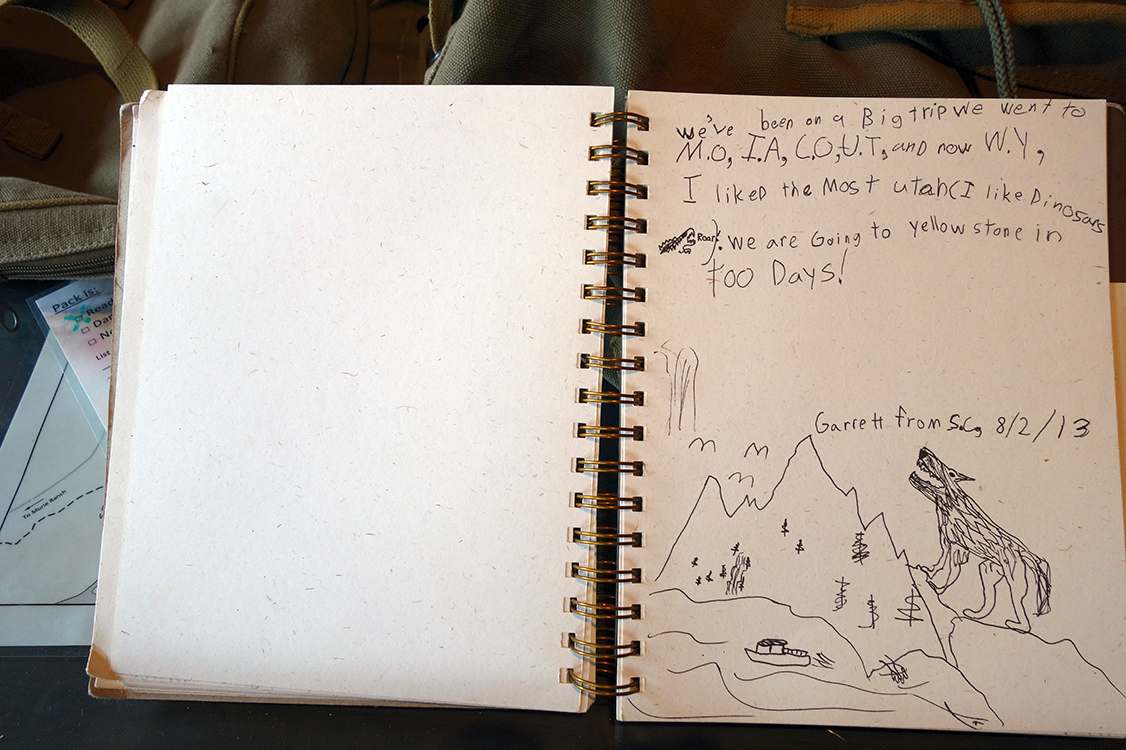 we've been on a Big trip We went to
M.O, I.A, C.O, U.T, and now W.Y,
I liked the Most utah(I like Dinosars
Roar!). we are Going to yellow stone in
100 Days!
Garrett from S.C, 8/2/13
Pack is:
To Murie Ranch